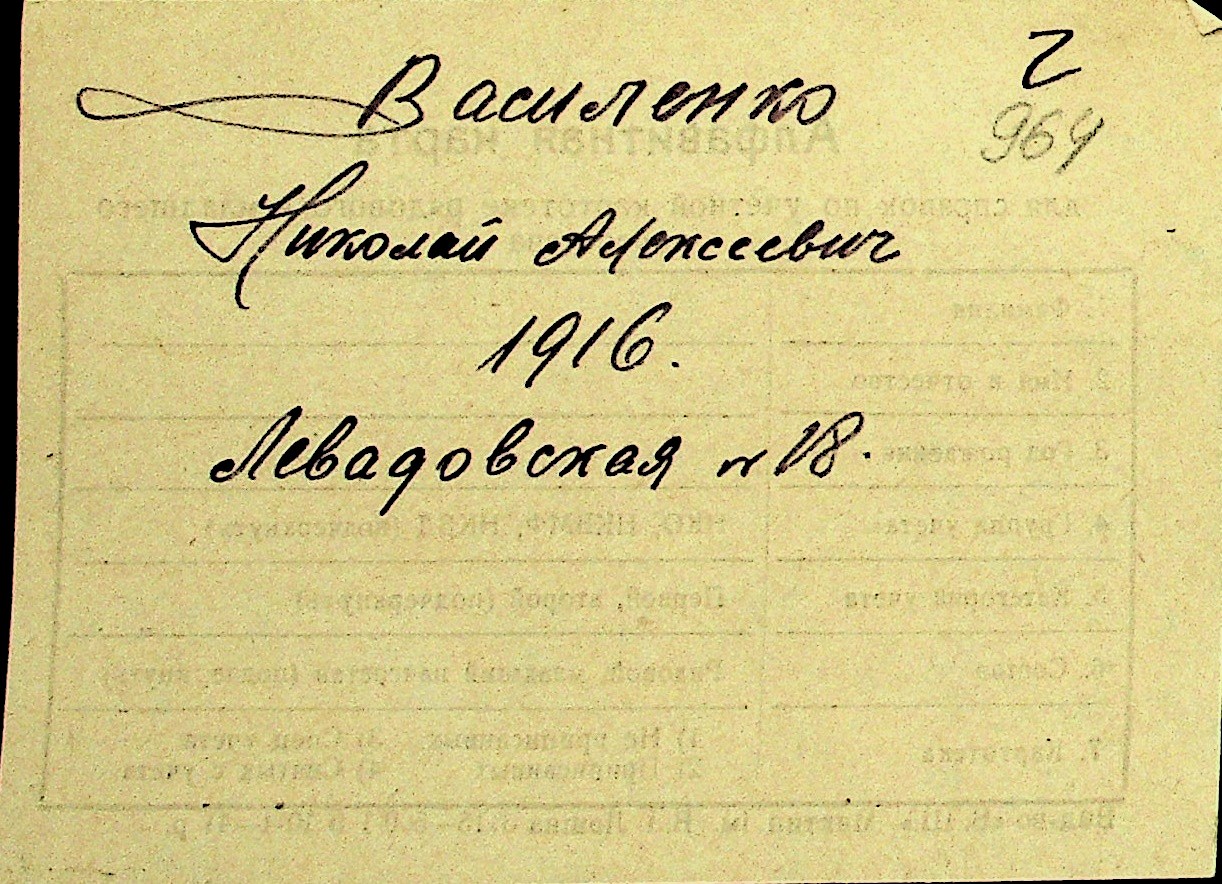 Василенко
964
Николай Алексеевич
1916.
Левадовская № 18.
Алфавитная карта
для справок по учетной картотеке рядового и младшего
1. Фамилия
2. Имя и отчество
3. Год рождения
4. Группа учета НКО, НКВМФ, НКВД (подчеркнуть)
5. Категория учета Первой, второй (подчеркнуть)
6. Состав Рядовой, младший начсостав (подчеркнуть)
7. Картотека
1) Не приписанных 3) Спец. учета
2) Приписанных 4) Снятых с учета